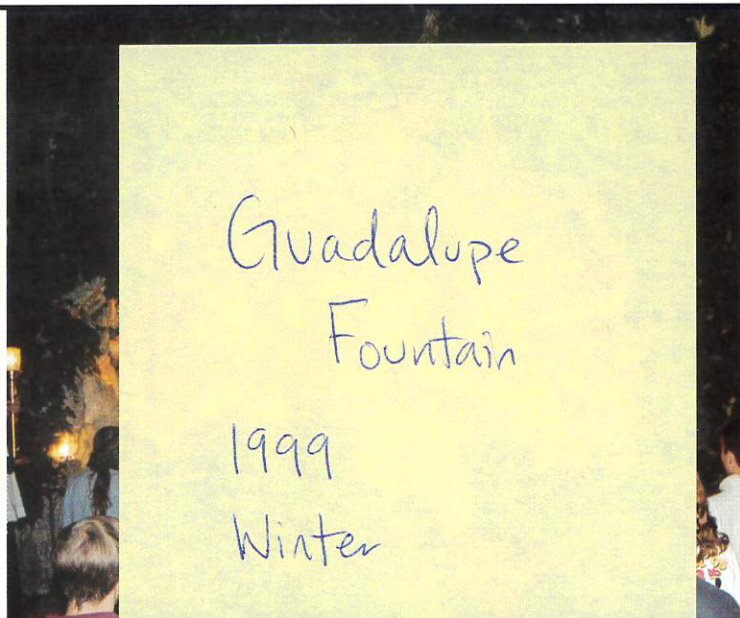 Guadalupe
Fountain
1999
Winter